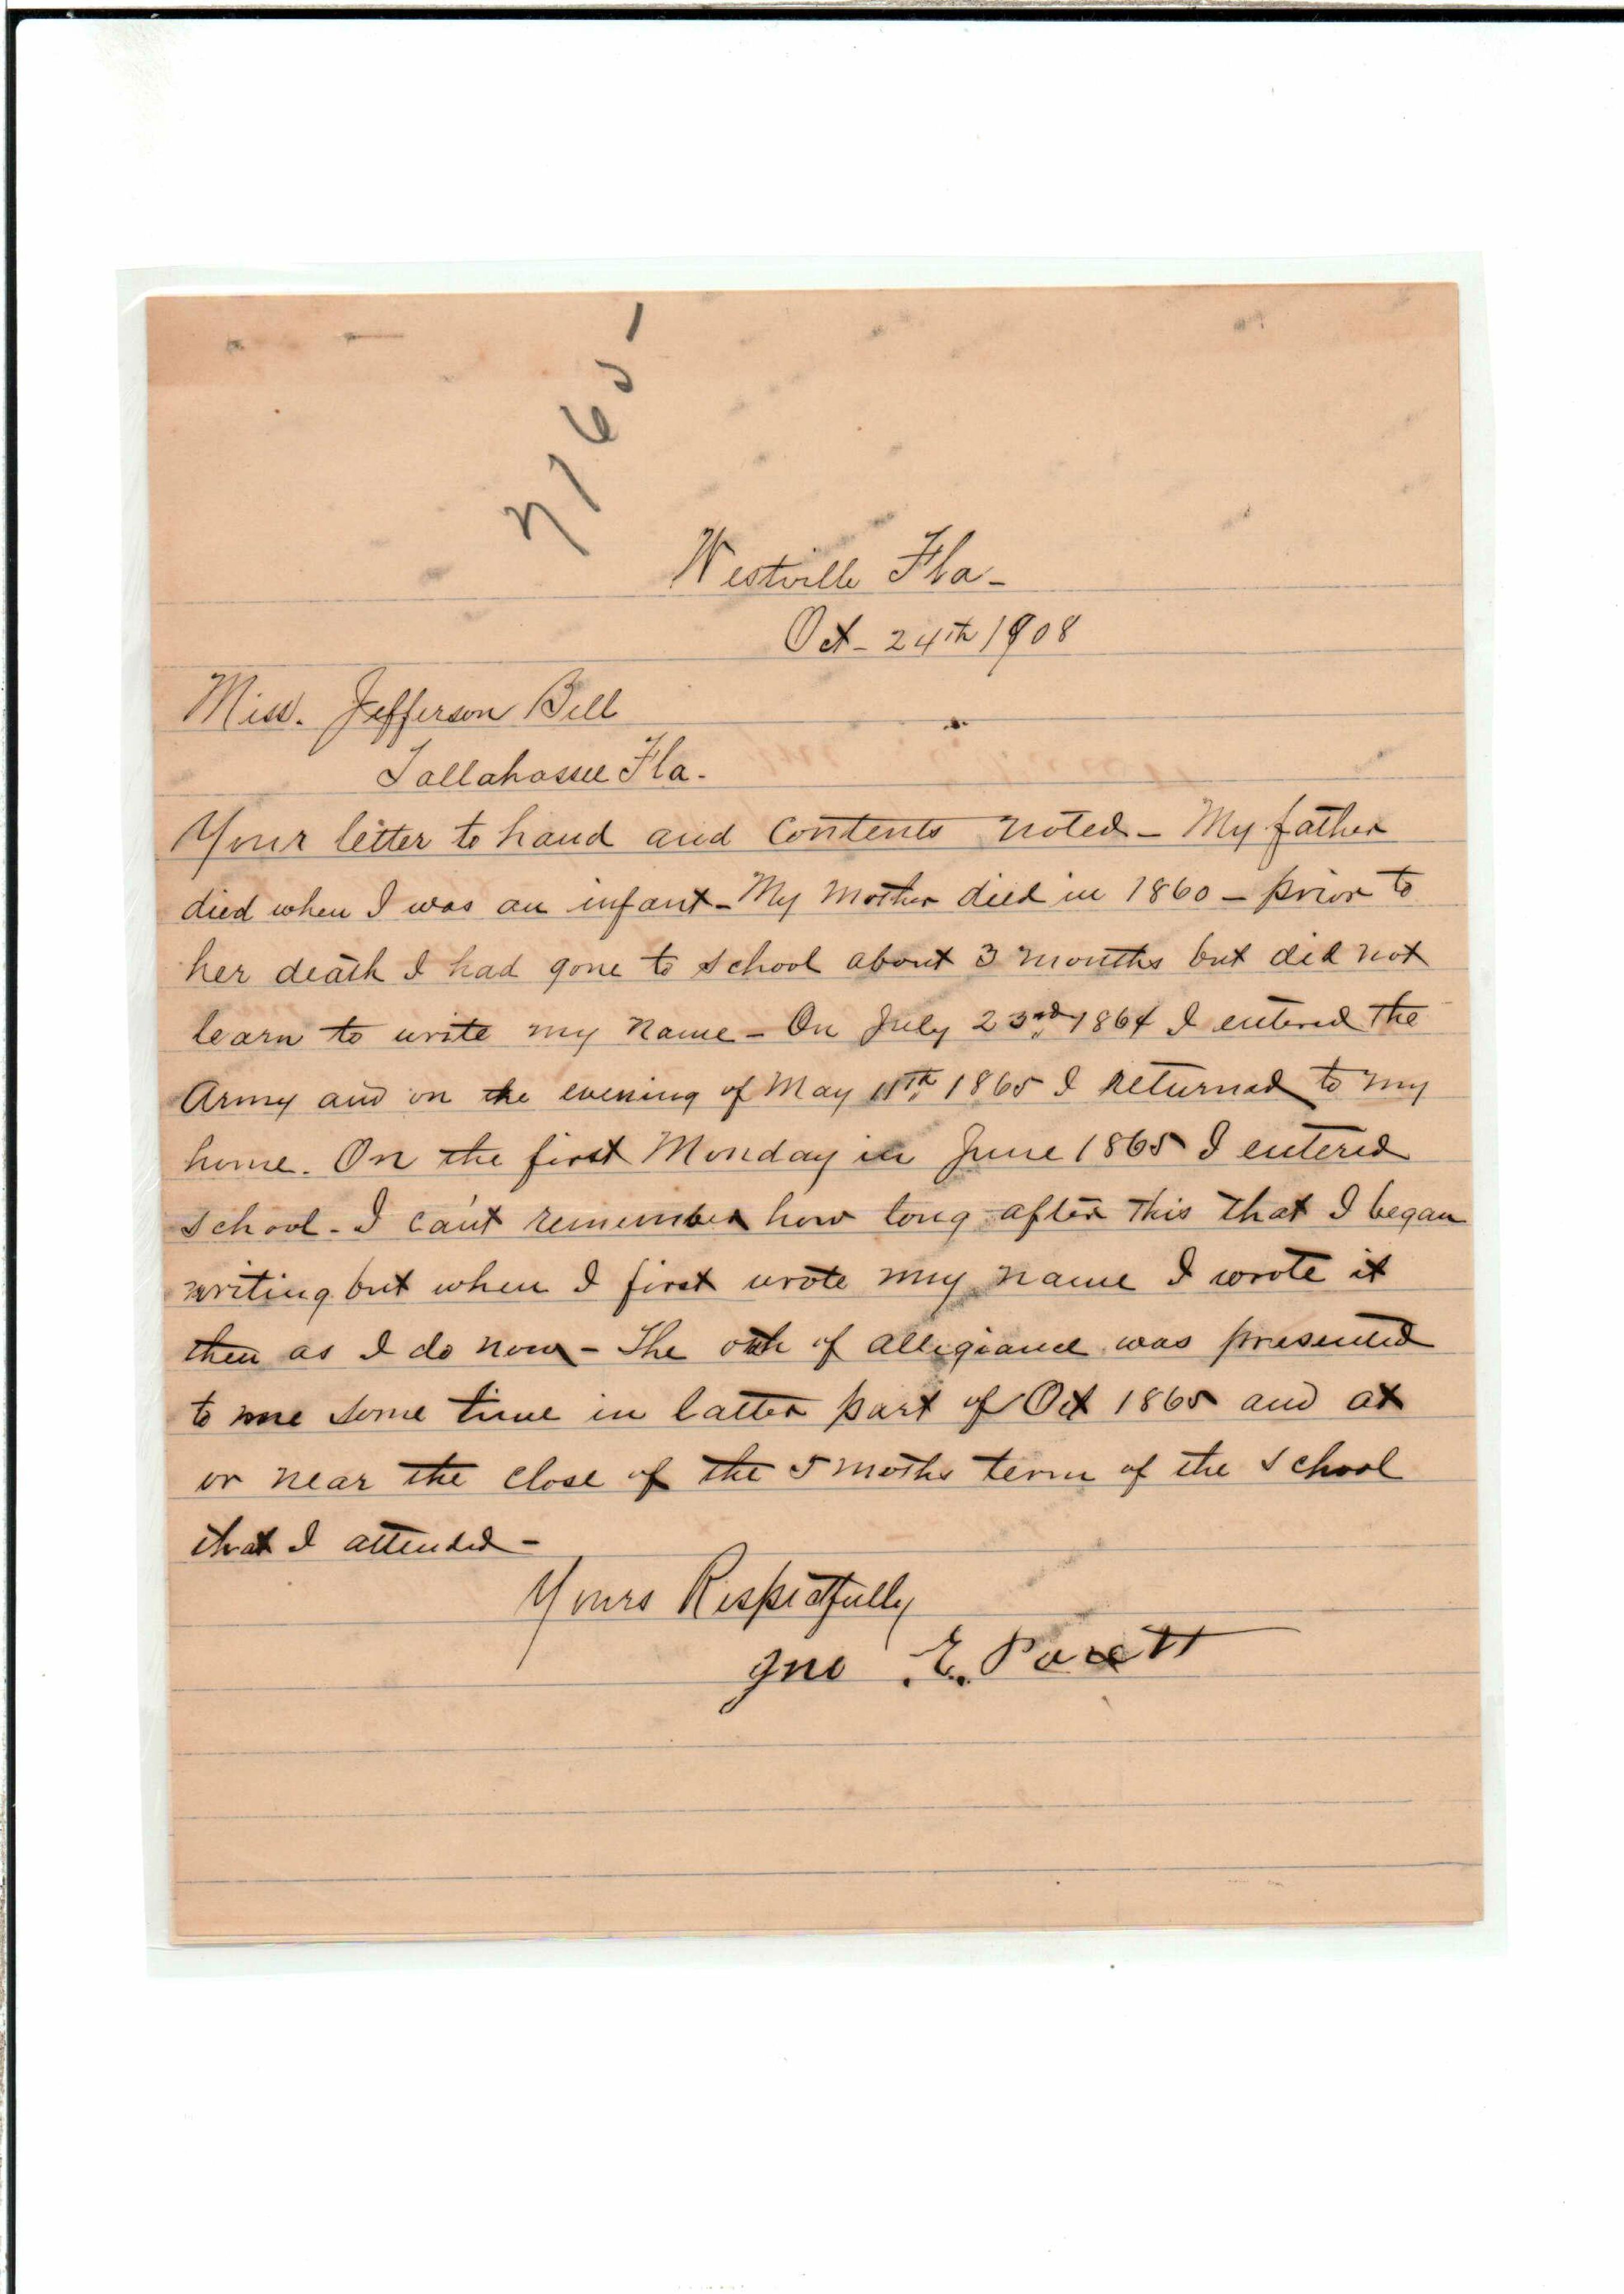 7165-
Westville Fla-
Oct- 24th 1908
Miss. Jefferson Bell
Tallahassee Fla.
Your letter to hand and contents noted - My father
died when I was an infant - My Mother died in 1860 - prior to
her death I had gone to school about 3 months but did not
learn to write my name - On July 23rd 1864 I entered the
Army and on the evening of May 11th 1865 I returned to my
home. On the first Monday in June 1865 I entered
school - I can't remember how long after this that I began
writing but when I first wrote my name I wrote it
then as I do now - The oath of allegiance was presented
to me some time in latter part of Oct 1865 and at
or near the close of the 5 moths term of the school
that I attended -
Yours Respectfully
Jno E.